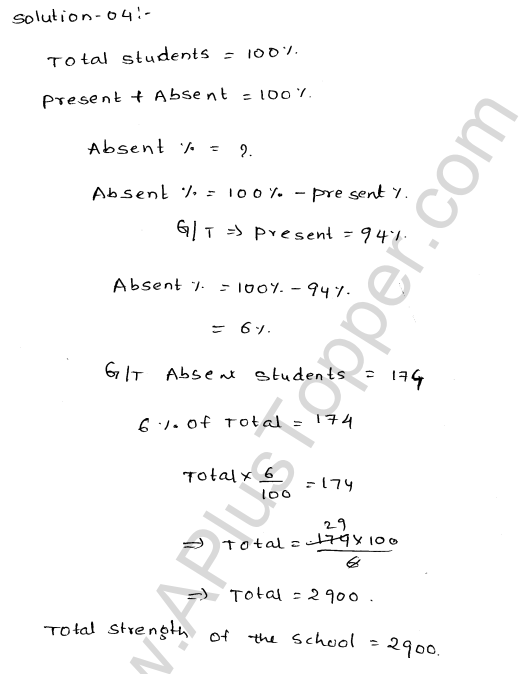 Solution-04:-
Total students = 100%.
Present + Absent = 100%.
Absent % = ?.
Absent % = 100% - present %.
G/T ⇒ Present = 94%.
Absent % = 100% - 94%.
= 6%.
G/T Absent Students = 174
6% of Total = 174
Total × 6/100 = 174
⇒ Total = 29 174 × 100 / 6
⇒ Total = 2900.
Total Strength of the School = 2900.
w.APlusTopper.com